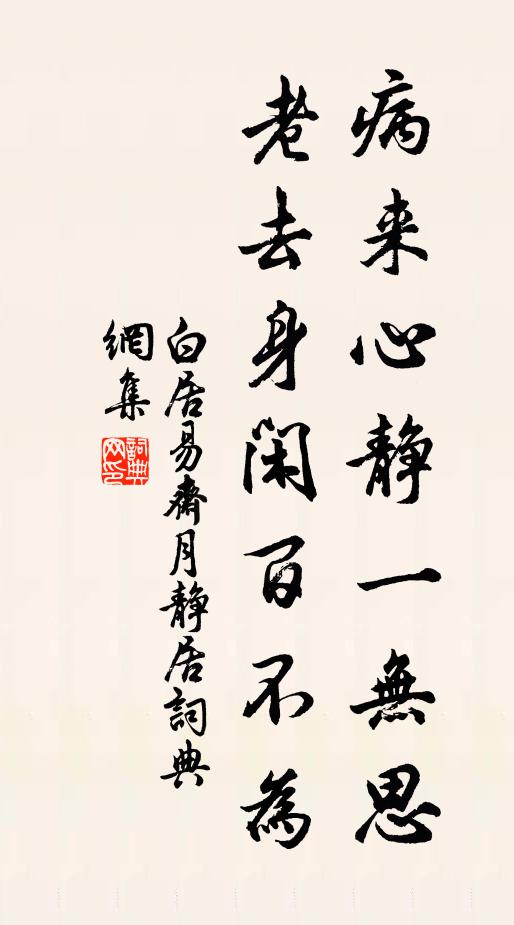 病来心静一無思
老去身闲百不為
白居易齋月静居詞典
網集
詞典网印